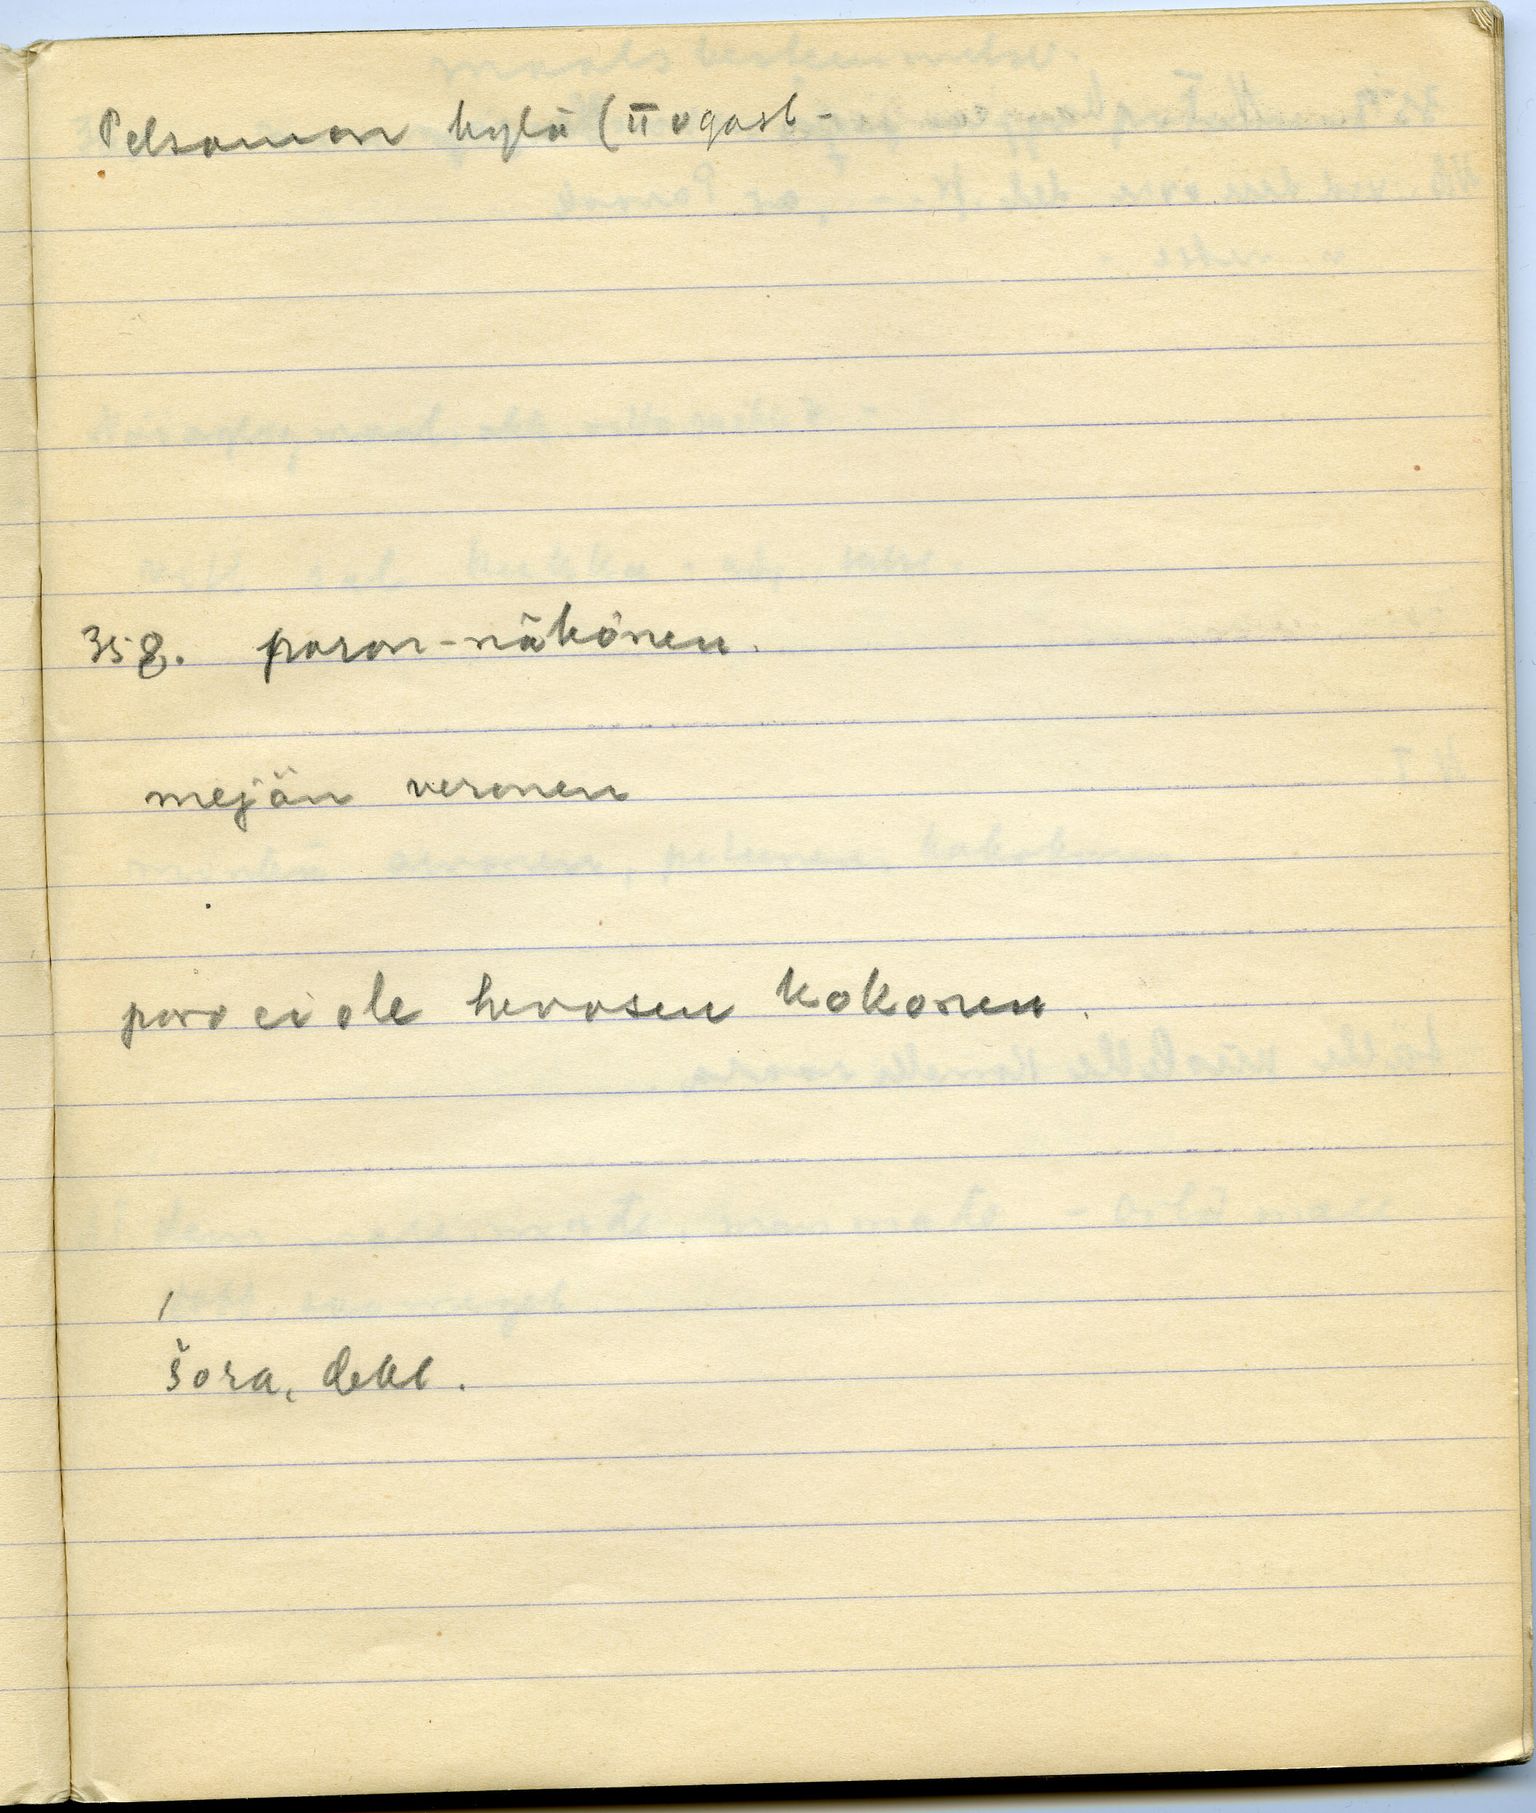 Pelsomon kylä (II ogast-
358. poron-näkönen.
mejän veronen
poro ei ole hevosen kokonen.
šora, dekl.